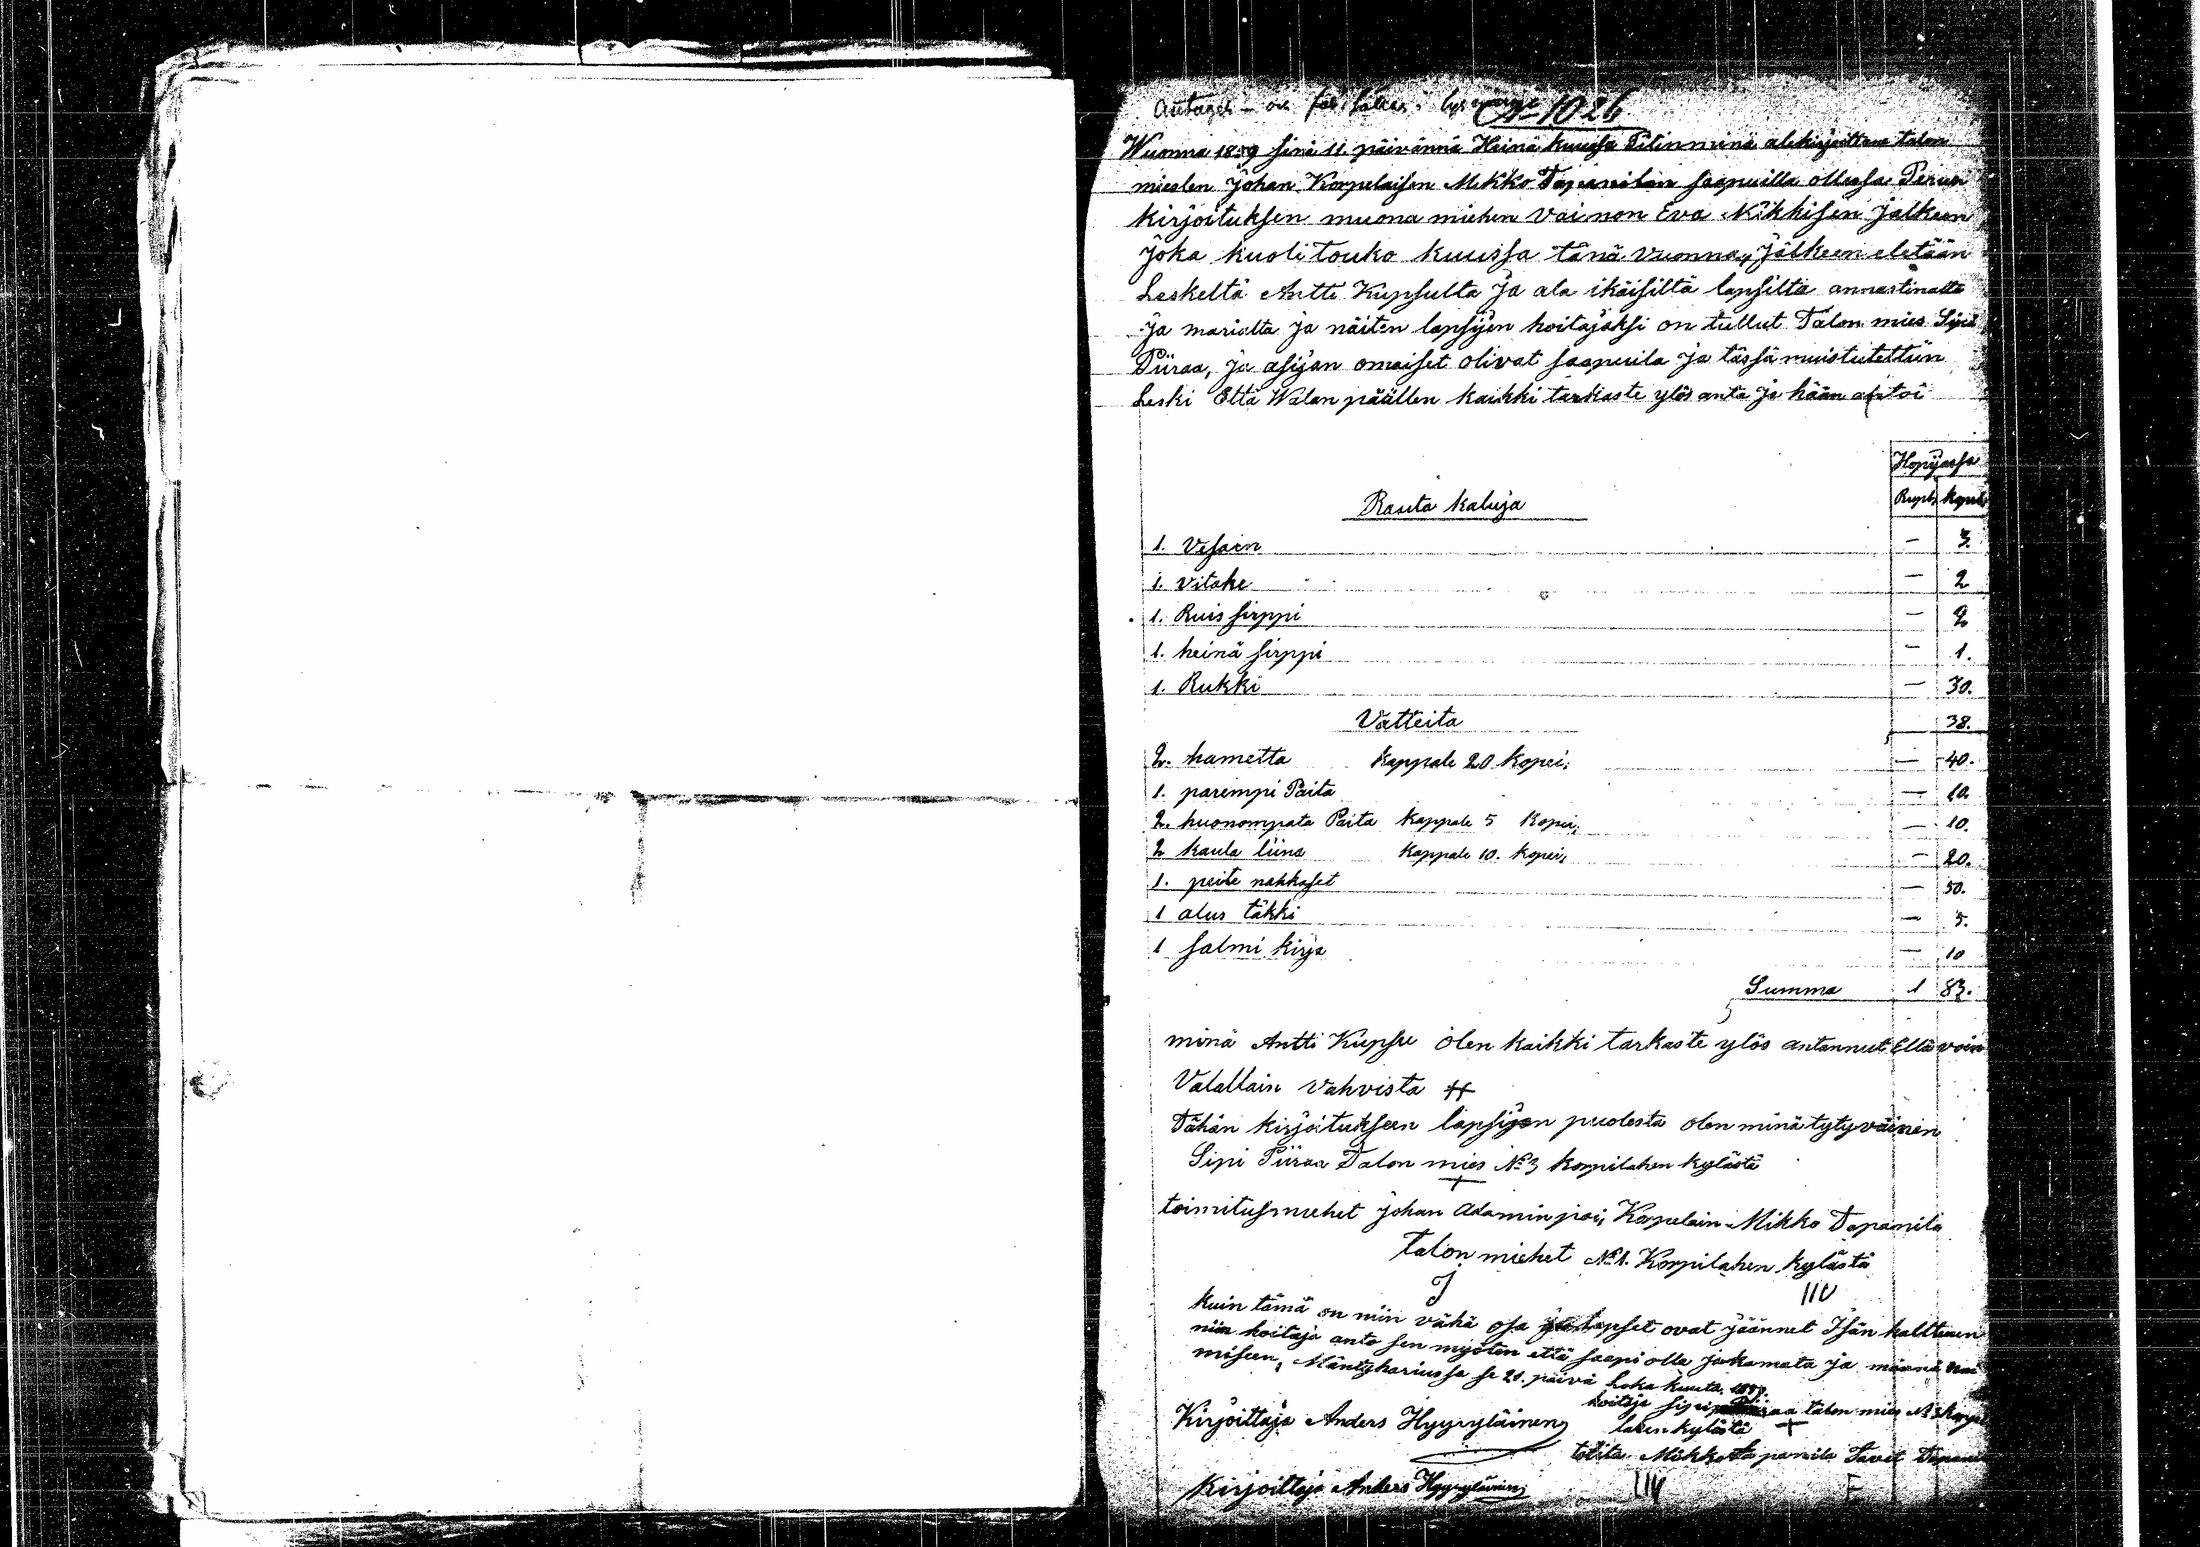 No 1026
Wuonna 1859 sinä 11. päivännä Heinä kuussa Pitin minä alekirjoittava talon
mieslen Johan Korpelaisen Mikko Tapanilan saapuilla ollessa Perun
kirjoituksen muona miehen vaimon Eva Nikkisen jälkeen
joka kuoli Touko kuussa tänä vuonna, Jälkeen eletään
Leskeltä Antti Kupsulta ja ala ikäisiltä lapsilta annastinalta
ja marialta ja näiten lapsijen hoitajaksi on tullut Talon mies Sipi
Piiraa, ja asijan omaiset olivat saapuila ja tässä muistutettiin
Leski Että Walan päällen kaikki tarkaste ylös anta ja hään antoi
Hopijassa
Rupl. kopek.
Rauta kaluja
1. Vesain — 3.
1. vitake — 2
1. Ruis sirppi — 2
1. heinä sirppi — 1.
1. Rukki — 30.
Vatteita 38.
2. hametta kappale 20 kopei, — 40.
1. parempi Paita — 10.
2. huonompata Paita kappale 5 kopei, — 10.
2 kaula liina kappale 10. kopei, — 20.
1. peite nahkaset — 50.
1 alus täkki — 5.
1 salmi kirja — 10
Summa 1 83.
minä Antti Kupsu olen kaikki tarkaste ylös antannut Että voin
Valallain vahvista #
Tähän kirjoitukseen lapsijen puolesta olen minä tytyväinen
Sipi Piiraa Talon mies No 3 korpilahen kylästä
+
toimitusmiehet Johan Adamin poi, Korpelain Mikko Tapanila
talon miehet No 1. Korpilahen kylästä
kuin tämä on niin vähä osa ja lapset ovat jäännet Isän haltteuen
niin hoitaja anto sen myöten että saapi olla jakamata ja männä
miseen, Mäntyhariussa se 21. päivä Loka kuuta
hoitaja Sipi Piiraa talon mies No 3 Korpi
lahen kylästä +
Kirjoittaja Anders Hyyryläinen
totista Mikko Tapanila Tavit Tapani
Kirjoittaja Anders Hyyryläinen